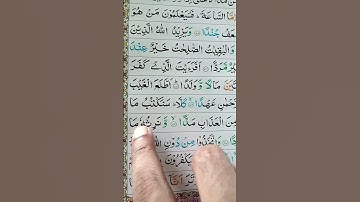 مَّا السَّاعَةَ ؕ فَسَيَعْلَمُوْنَ مَنْ هُوَ
عَفُ جُنْدًا ۝ وَيَزِيْدُ اللّٰهُ الَّذِيْنَ
وَالْبٰقِيٰتُ الصّٰلِحٰتُ خَيْرٌ عِنْدَ
مَّرَدًّا ۝ اَفَرَءَيْتَ الَّذِيْ كَفَرَ
مَالًا وَّوَلَدًا ۝ اَطَّلَعَ الْغَيْبَ
عَهْدًا ۝ كَلَّا ؕ سَنَكْتُبُ مَا
مِنَ الْعَذَابِ مَدًّا ۝ وَّنَرِثُهٗ مَا
وَاتَّخَذُوْا مِنْ دُوْنِ اللّٰهِ
يَكْفُرُوْنَ
تَرَ اَنَّآ